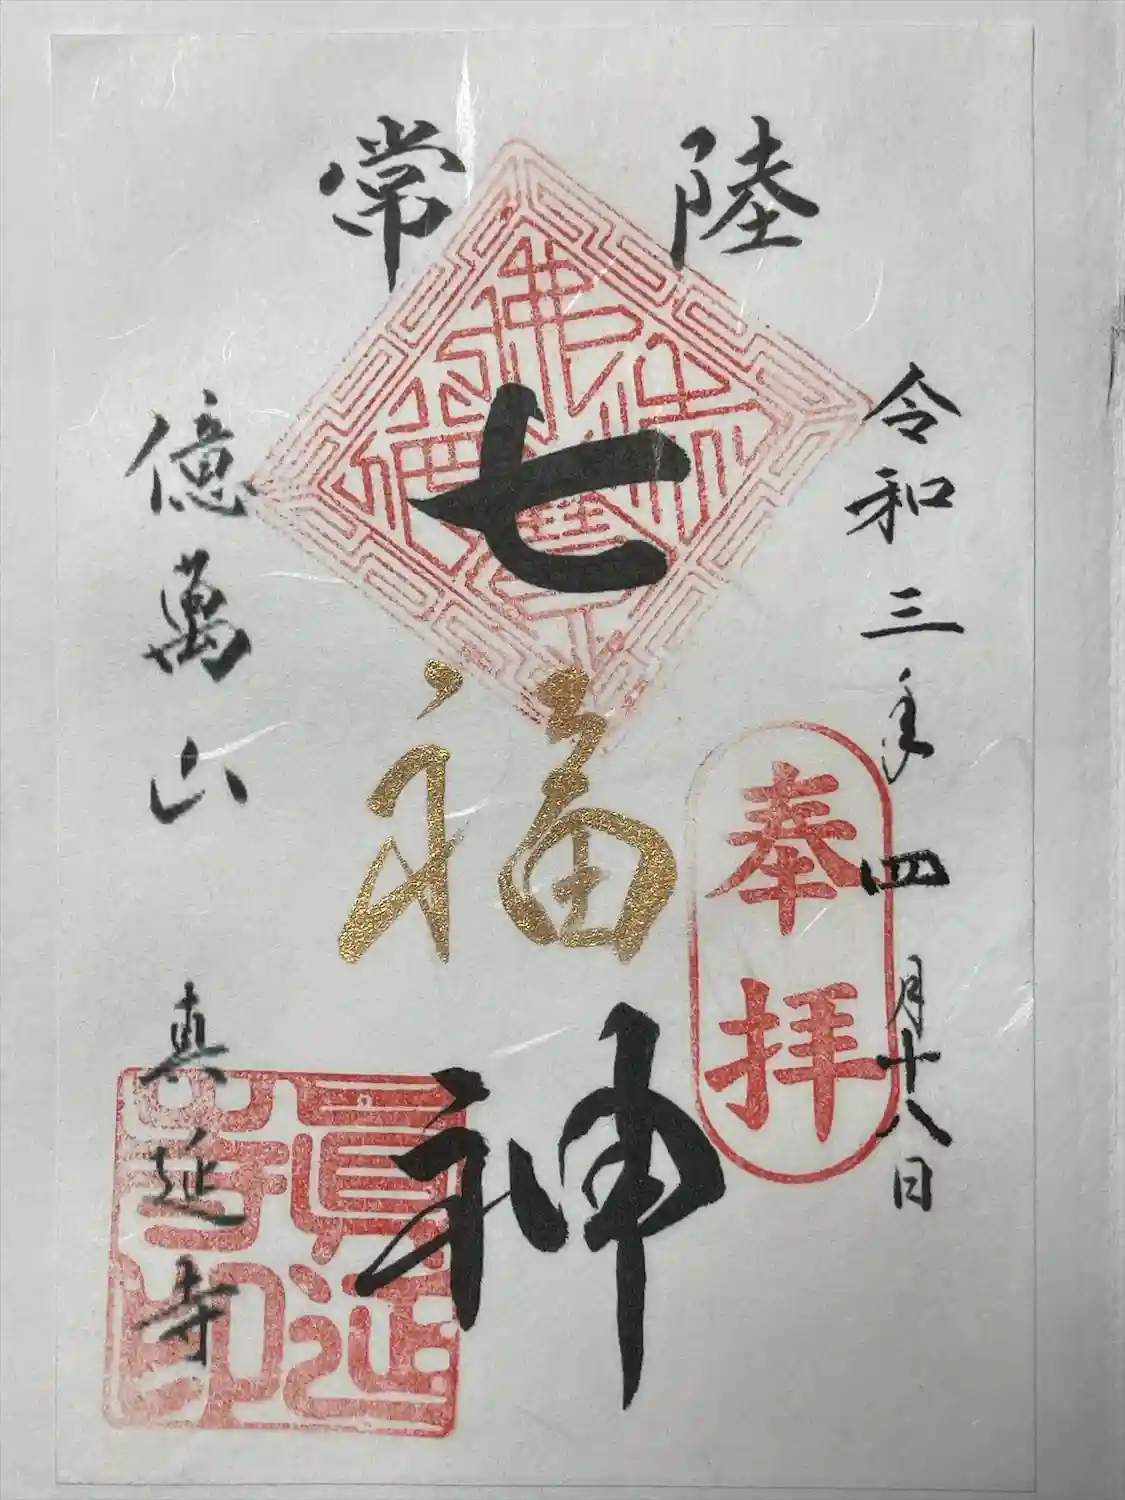 常陸
令和三年四月十八日
奉拝
七福神
億萬山 真延寺
眞延寺印